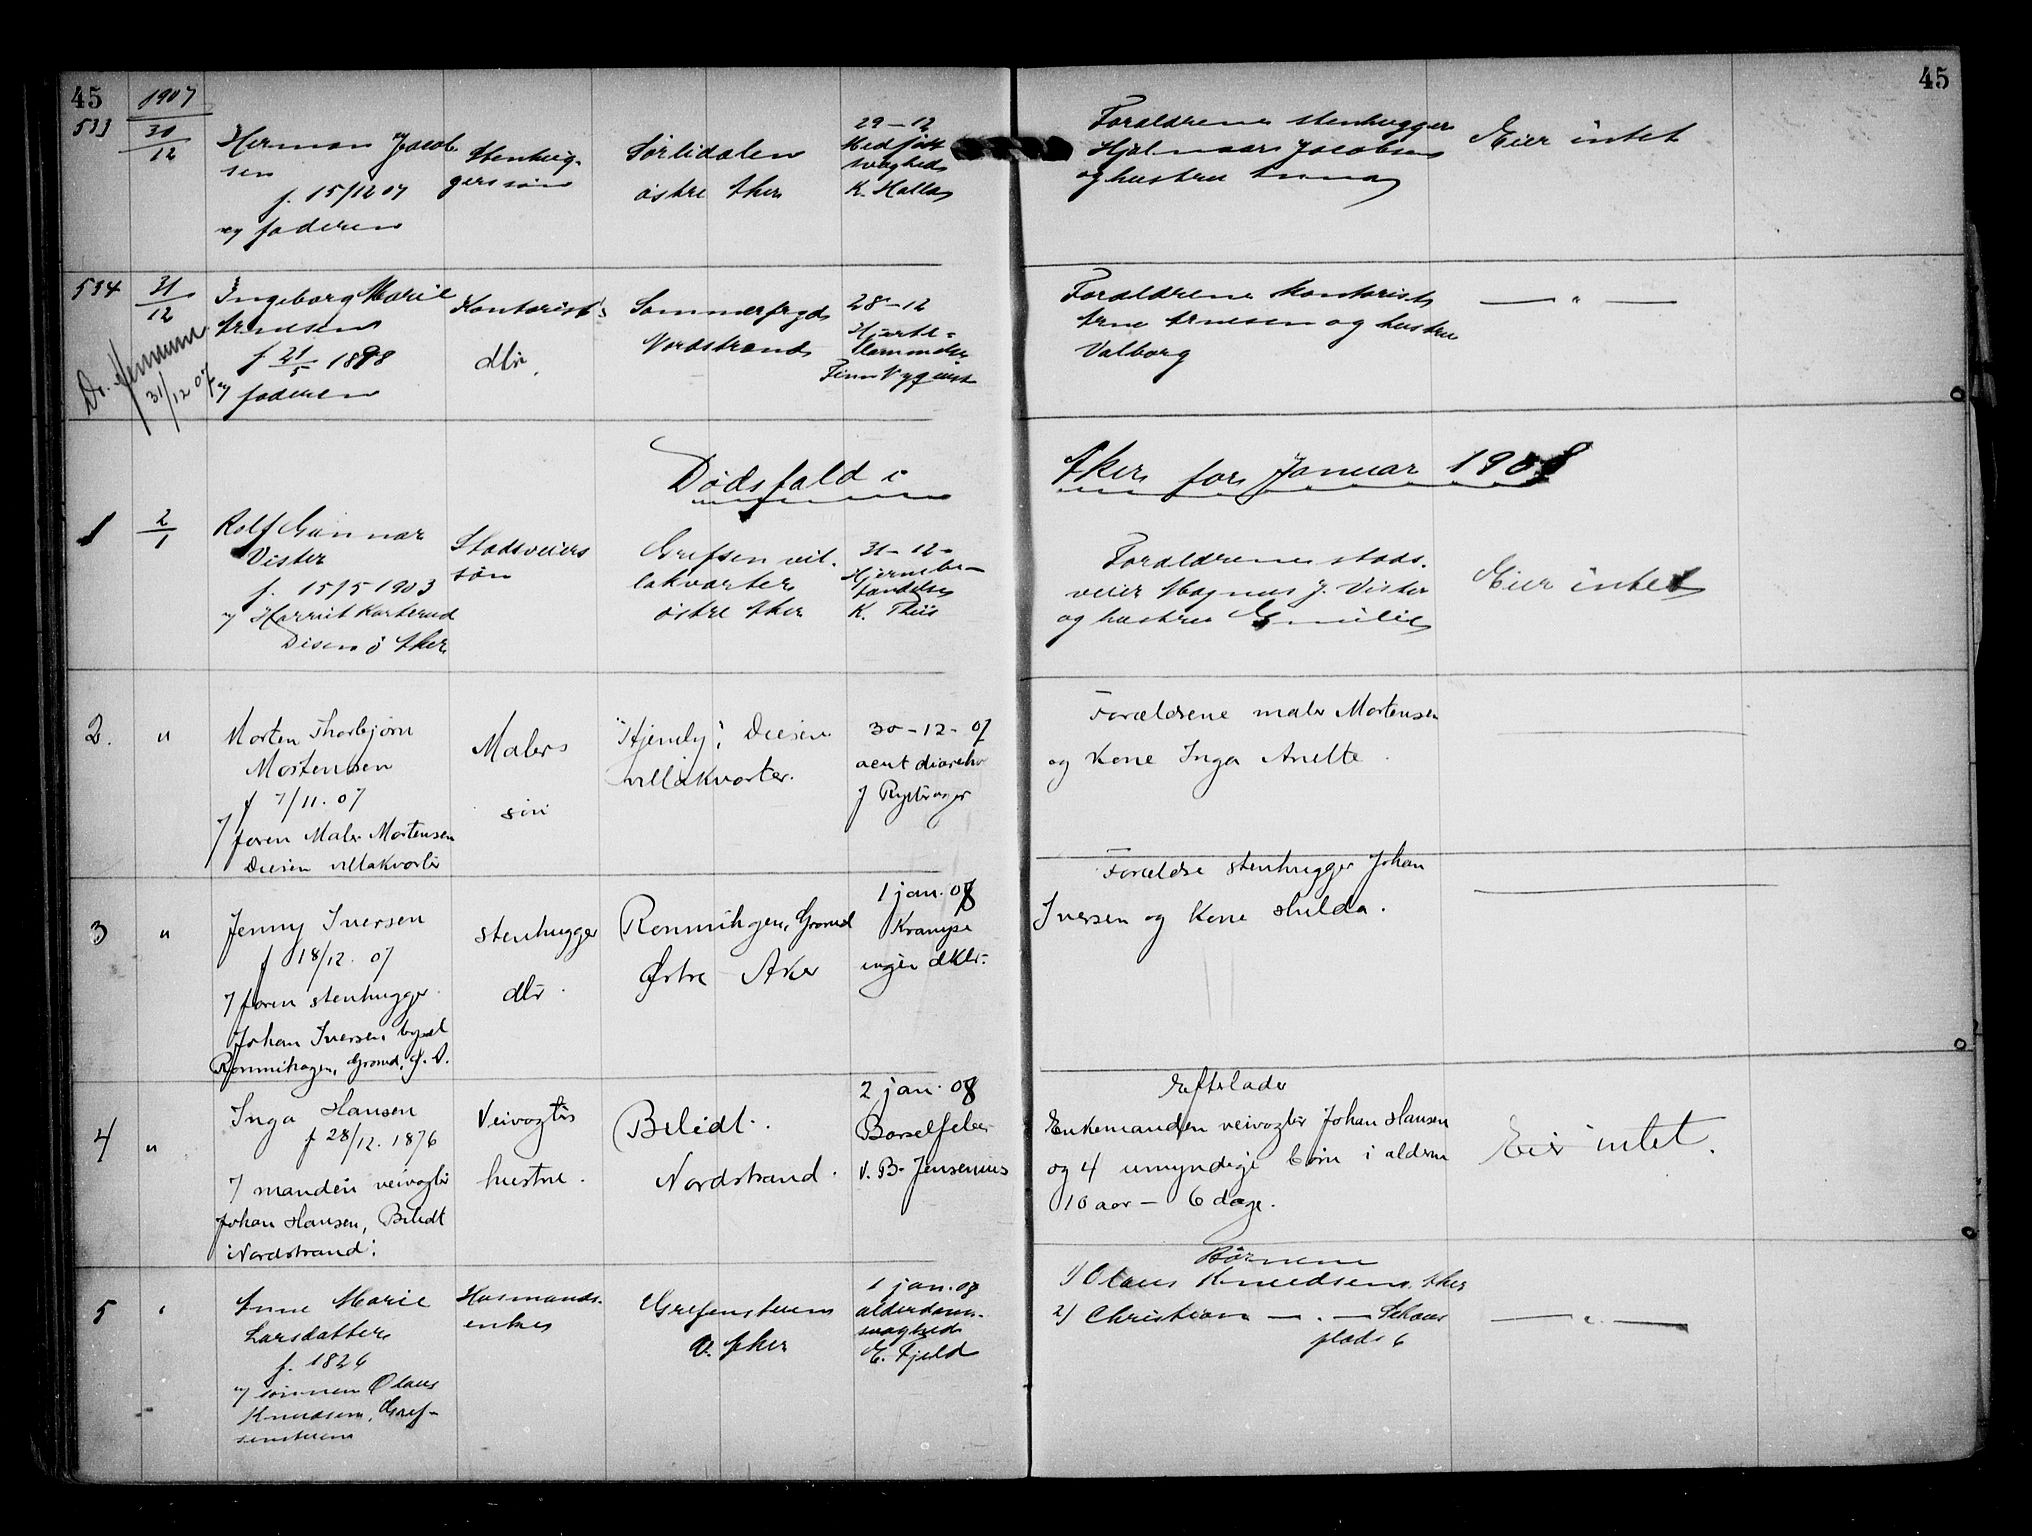 45
1907
533
31/12
Herman Jacob
sen
f. 15/12 07
v/ faderen
Stenhug-
gers søn
Sørlidalen
østre Aker
29-12
Medfødt
svaghed
K. Halls
Forældrene stenhugger
Hjalmar Jacobsen
og hustru Anna
Eier intet
45
534
31/12
Ingeborg Marie
Arnesen
f 21/5 1898
v/ faderen
Kontorist's
dtr.
Sommerfryd
Nordstrand
28-12
Hjerte-
Forældrene kontorist
Arne Arnesen og hustru
Valborg
— " —
31/12 07
Dødsfald i
Aker for Januar 1908
1
2/1
Rolf Gunnar
Vister
f. 15/5 1903
v/ Harriet
Disen ø Aker
Stadsveiers
søn
Grefsen vil-
lakvarter
østre Aker
31-12-
Hjernebe-
tændelse
K. Thiis
Forældrene stads-
veier Magnus J. Vister
og hustru Emilie
Eier intet
2.
"
Morten Thorbjørn
Mortensen
f 7/11. 07
v/ faren Maler Mortensen
Disen villakvarter
Malers
søn
"Hjemly", Disen
villakvarter.
30-12-07
acut
Forældrene maler Mortensen
og Kone Inga Anette.
3
"
Jenny Iversen
f 18/12. 07
v/ faren stenhugger
Johan Iversen, bopæl
Rommihagen, Grorud, Ø. A.
stenhugger
dtr.
Rommihagen, Grorud
Østre Aker
1 jan. 08
Krampe
ingen dktr.
Forældre stenhugger Johan
Iversen og Kone Hulda.
4
"
Inga Hansen
f 28/12. 1876
v/ manden veivogter
Johan Hansen, Belidt
Nordstrand.
Veivogters
hustru.
Belidt.
Nordstrand.
2 jan. 08
Barselfeber
V. B. Jensenius
Efterlader
Enkemanden veivogter Johan Hansen
og 4 umyndige børn i alderen
10 aar — 6 dage.
Eier intet.
5
"
Anne Marie
Larsdatter
f. 1826
v/ sønnen Olaus
Knudsen, Gref-
senstuen
Husmands-
enke
Grefsenstuen
V. Aker
1 jan. 08
alderdoms-
svaghed
E. Fjeld
Børnene
1) Olaus Knudsen, Aker
2) Christian — " — Schous
plads 6
— " —